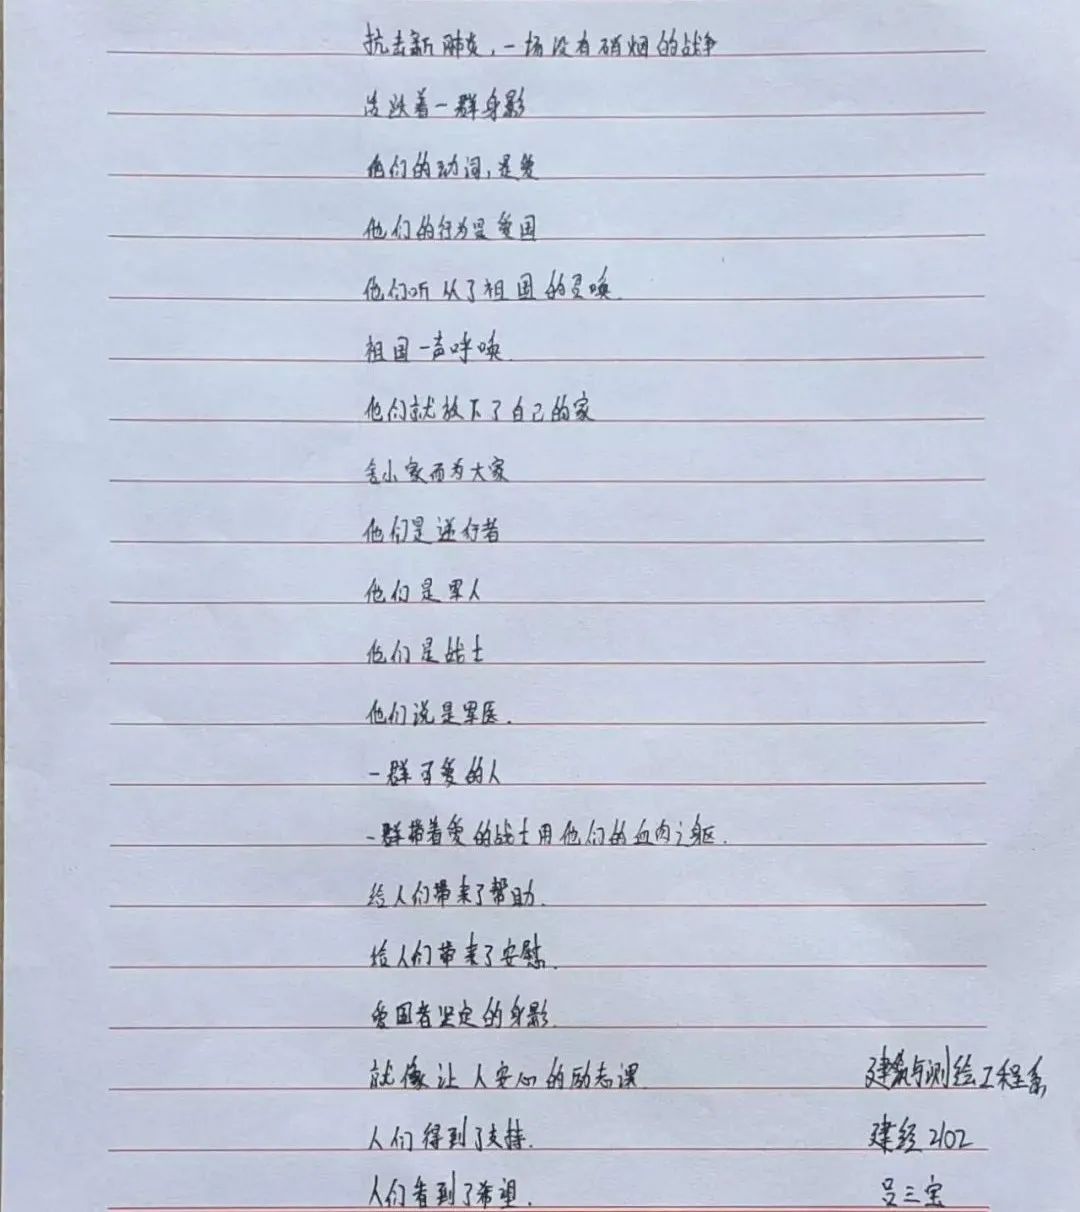 抗击新肺炎,一场没有硝烟的战争
活跃着一群身影
他们的动词,是爱
他们的行为是爱国
他们听从了祖国的召唤.
祖国一声呼唤.
他们就放下了自己的家
舍小家而为大家
他们是逆行者
他们是军人
他们是战士
他们说是军医.
一群可爱的人
一群带着爱的战士用他们的血肉之躯.
给人们带来了帮助.
给人们带来了安慰.
爱国者坚定的身影.
就像让人安心的励志课.
建筑与测绘工程系
人们得到了支持.
建经2102
人们看到了希望.
吕三宝